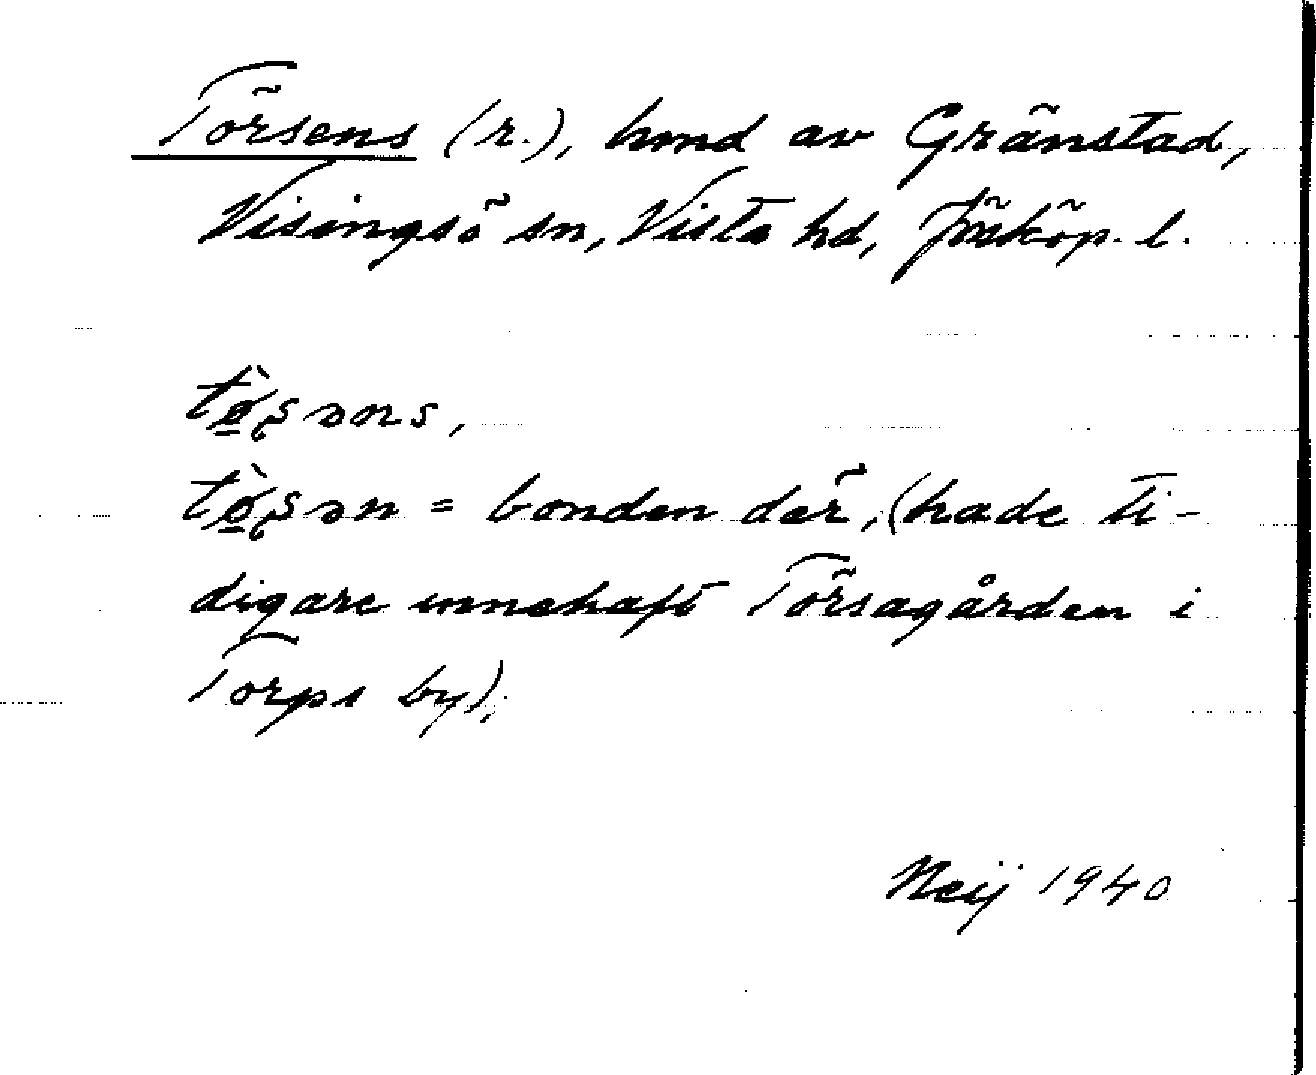 Törsens (r.), hmd av Gränstad,
Visingsö sn, Vista hd, Jönköp. l.
tø̀ṣəns,
tø̀ṣən = bonden där, (hade ti-
digare innehaft Törsagården i
Torps by).
Neij 1940